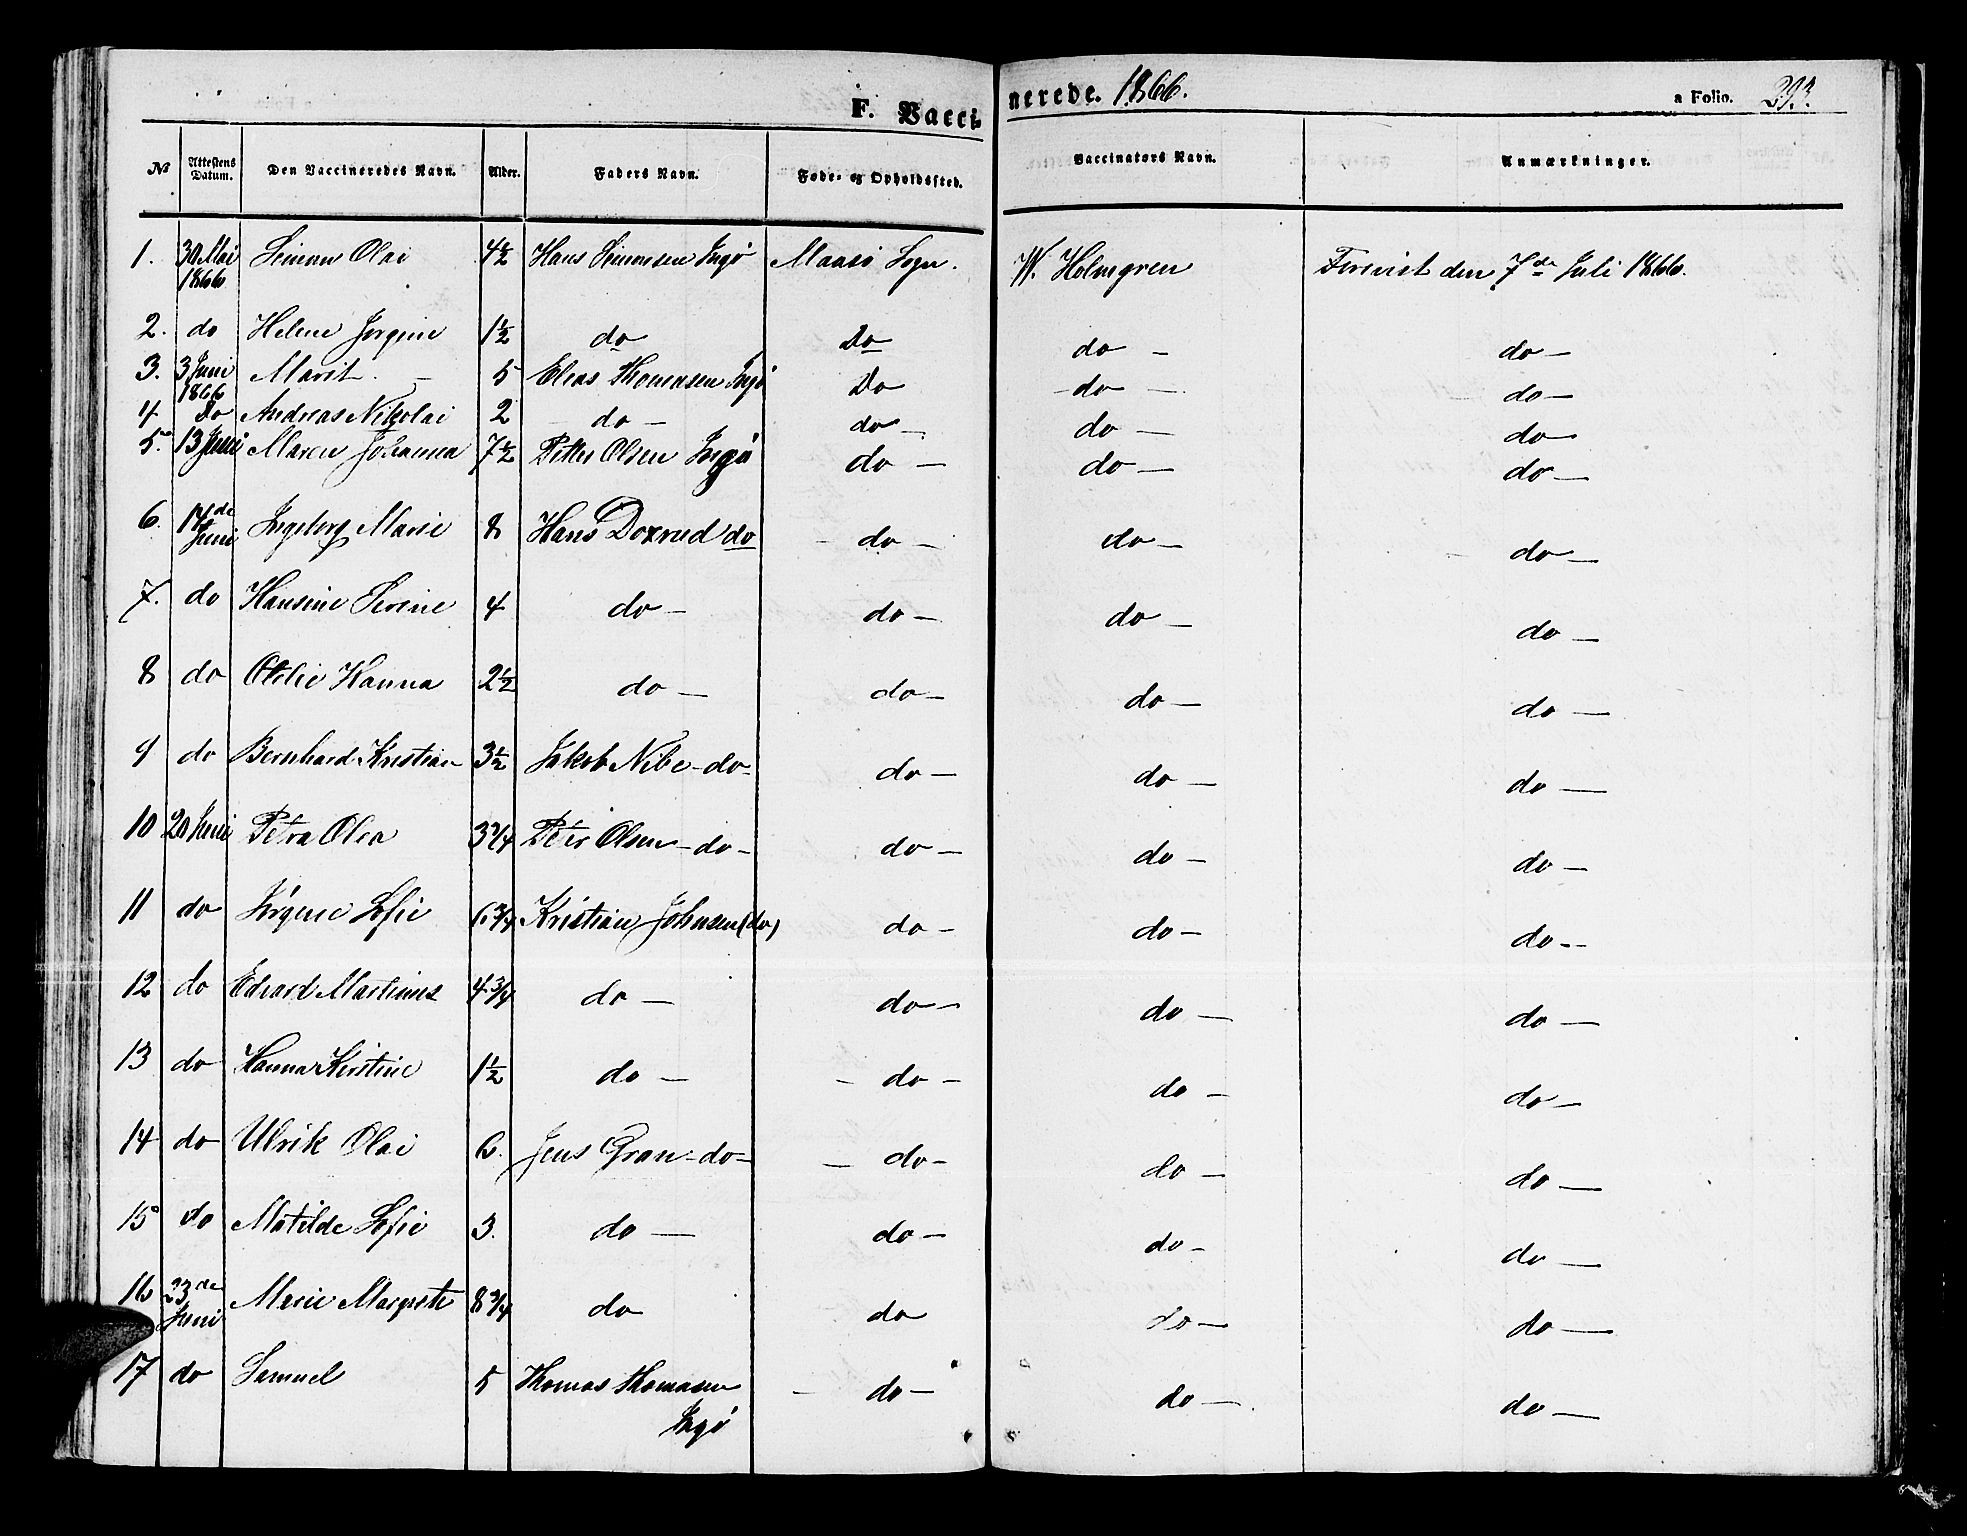 F. Vaccinerede. 1866. a Folio. 393.
№ Attestens Datum. Den Vaccineredes Navn. Alder. Faders Navn. Føde- og Opholdssted. Vaccinators Navn. Anmærkninger.
1. 30 Mai 1866 Simon Olai 4½ Hans Simonsen Ingø Maasø Sogn. W. Holmgren Fireviist den 7de Juli 1866.
2. do Helene Jorgine 1½ do Do do - do -
3. 3 Juni 1866 Marit - 5 Elias Thomasen Ingø Do - do - - do -
4 Do Andreas Nikolai 2 - do - do - do - do
5. 13 Juni Maren Johanna 7½ Petter Olsen Ingø do - do - do -
6. 17de Juni Ingeborg Marie 8 Hans Doxrud do - do - do - - do -
7. do Hansine Serine 4 do - do - do - do -
8 do Otelie Hanna 2½ do - do - do - do -
9 do Bernhard Kristian 3½ Jakob Nibe - do - do - do - do -
10 20 Juni Petra Olea 3¾ Peter Olsen - do - do - do - do -
11 do Jörgine Sofie 6¾ Kristian Johnsen (do) do - do - do --
12 do Edvard Martinus 4¾ do - do - do - do -
13 do Hanna Kirstine 1½ do - - do - do - do -
14 do Ulrik Olai 6. Jens Gran - do - - do - do - do -
15 do Matilde Sofie 3. do - do - do - do -
16 23de Juni Marie Margrete 8¾ do do do - do -
17 do Samuel 5 Thomas Thomasen Ingø - do - do - do -